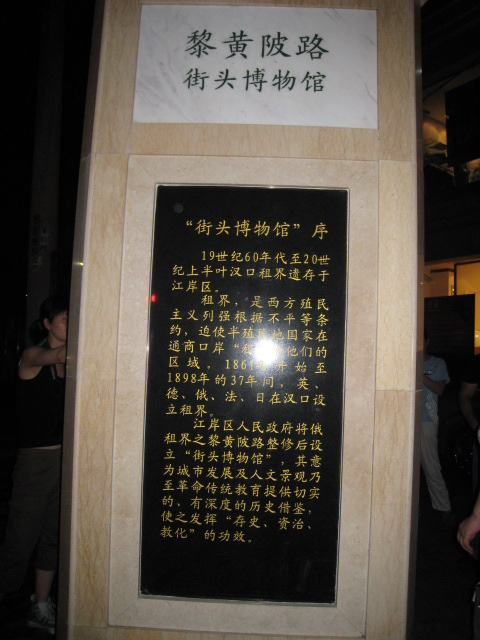 黎黄陂路
街头博物馆
“街头博物馆”序
19世纪60年代至20世
纪上半叶汉口租界遗存于
江岸区。
租界，是西方殖民
主义列强根据不平等条
约，迫使半殖 地国家在
通商口岸“ 他们的
区域，1861 开始至
1898年的37年间，英、
德、俄、法、日在汉口设
立租界。
江岸区人民政府将俄
租界之黎黄陂路整修后设
立“街头博物馆”，其意
为城市发展及人文景观乃
至革命传统教育提供切实
的、有深度的历史借鉴，
使之发挥“存史、资治、
教化”的功效。